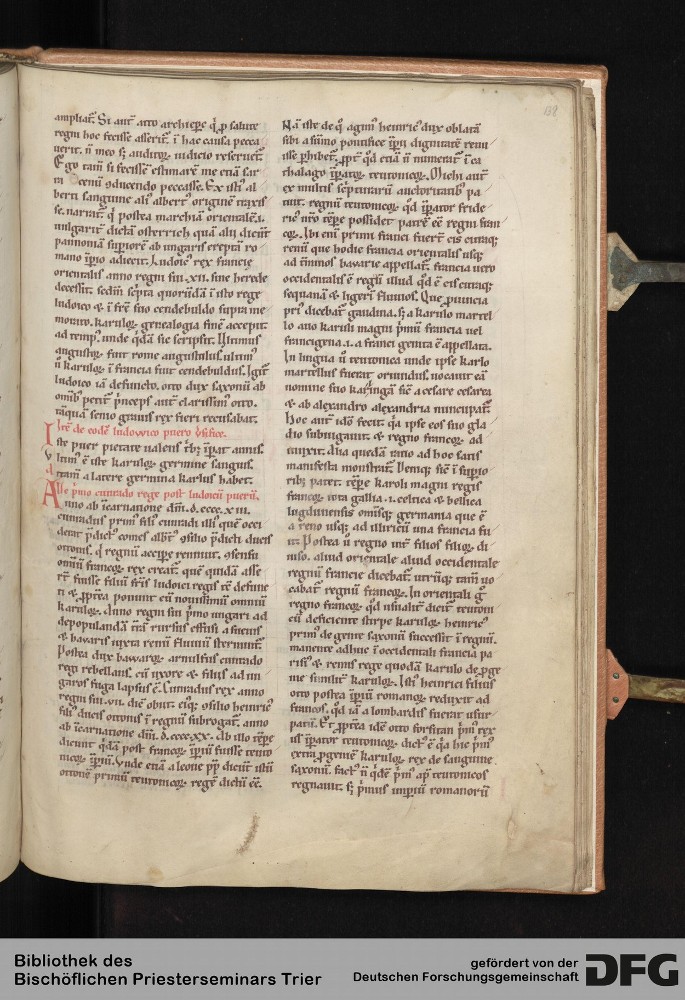 139
ampliat̃. Si aut̃ atto archiep̃c q̃ p̱ salute
regni hoc fecisse asserit᷑. ĩ hac causa pecca
uerit. ñ meo sʒ auditoꝝ iudicio reseruet᷑.
Ego tam̃ si fecisse estimarẽ me etiã
ꝯducendo peccasse. Ex isti᷒ al
berti sanguine ali᷒ albert᷒ originẽ t̃axis
se. narrat᷑. q̃ postea marchiã orientalẽ .i.
uulgarit̃ dictã osterrich quã alii dicũt
pannoniã supiorẽ ab ungaris ereptã ro
mano ĩp̃io adiecit. Ludoic᷒ rex francie
orientalis anno regni sui .xii. sine herede
decessit. sc̃dm̃ sc̃pta quorũdã ĩ isto rege
ludoico ⁊ ĩ fr̃e suo cendebuldo supra me
morato. karuloꝝ genealogia finẽ accepit
ad temp᷒. unde q̃dã sic scripsit. Ultimus
augustoꝝ fuit rome augustulus. ultim᷒
ũ karuloꝝ ĩ francia fuit cendebuldus. Igit᷑
ludoico iã defuncto. otto dux saxonũ ab
omib᷒ petit᷑ p̃nceps aut̃ clarissim᷒ otto.
tãquã senio grauis rex fieri recusabat.
Itẽ de eodẽ ludowico puero ꝟsifice.
Iste puer pietate ualens t̃b᷒ ĩpat annis.
Vltim᷒ ẽ iste karuloꝝ germine sangui᷒.
tam̃ a latere germina karlus habet.
De p̃mo cunrado rege post ludoicũ puerũ.
Anno ab ĩcarnatione dñi .d.cccc.xiii.
cunradus prim᷒ fili᷒ cunradi illi᷒ quẽ occi
derat p̃dict᷒ comes alb̃t᷒ ꝯsilio p̃dicti ducis
ottonis. q̃ regnũ accipe rennuit. ꝯsensu
omiũ francoꝝ rex creat᷑. quẽ quidã asse
rt̃ fuisse filiũ fr̃is ludoici regis
ti ⁊ p̱p̃tea ponunt eũ nouissimũ omniũ
karuloꝝ. Anno regni sui p̃mo ungari ad
depopulandã t̃rã rursus effusi a sueuis
⁊ bawaris iuxta renũ fluuiũ sternunt᷑.
Postea dux bawaroꝝ arnulfus cunrado
regi rebellans. cũ uxore ⁊ filiis ad un
garos fuga lapsus ẽ. Cunradus rex anno
regni sui .vii. diẽ obiit. eiq̃ꝫ ꝯsilio heinric᷒
fili᷒ ducis ottonis ĩ regnũ subrogat᷑. anno
ab ĩcarnatione dñi .d.cccc.xx. Ab illo tẽpe
dicunt q̃dã post francoꝝ ĩp̃iũ fuisse teuto
nicoꝝ ĩp̃iũ. Unde etiã a leone pp̃ dicũt istũ
ottonẽ primũ teutonicoꝝ regẽ dictũ eẽ.
Nã iste de q̃ agim᷒ heinric᷒ dux oblatã
sibi a sũmo pontifice ĩp̃ii dignitatẽ renu
isse p̱hibet᷑. p̱pt̃ qd̃ etiã ñ numerat᷑ ĩ ca
thalago ĩp̃atoꝝ teutonicoꝝ. Michi aut̃
ex multis sc̃pturaꝝ auctoritatib᷒ pa
tuit. regnũ teutonicoꝝ. qd̃ ĩp̃ator fride
ric᷒ nr̃o tẽpe possidet partẽ eẽ regni fran
coꝝ. Ibi eni᷒ primi franci fuer̃t cis citraq̃ꝫ
renũ que hodie francia orientalis usq̃ꝫ
ad t̃minos bawarie appellat᷑. francia uero
occidentalis ẽ regnũ illud qd̃ ẽ cis citraq̃ꝫ
sequanã ⁊ ligeri fluuios. Que puincia
pri᷒ dicebat᷑ gaudina. sʒ a karulo martel
lo auo karuli magni p̃mũ francia uel
francigena .i. a franci genita ẽ appellata.
In lingua ũ teutonica unde ipse karlo
martellus fuerat oriundus. uocauit eã
nomine suo karĩngã sic̃ a cesare cesarea
⁊ ab alexandro alexandria nuncupat᷑.
Hoc aut̃ idõ fecit. qa ipse eos suo gla
dio subiugauit. ⁊ regno francoꝝ ad
iunxit. Alia quedã ratio ad hoc satis
manifesta monstrat᷑. Deniq̃ꝫ sic̃ ĩ supio
rib᷒ patet. tẽpe karoli magni regis
francoꝝ tota gallia .i. celtica ⁊ bellica
lugdunensis omisq̃ꝫ germania que ẽ
a reno usq̃ꝫ ad illiricũ una francia fu
it. Postea ũ regno int̃ filios filioꝝ di
uiso. aliud orientale aliud occidentale
regnũ francie dicebat᷑. utrũq̃ꝫ tam̃ uo
cabat᷑ regnũ francoꝝ. In orientali g̊
regno francoꝝ qd̃ usualit̃ dicit᷑ teutoni
cũ deficiente stirpe karuloꝝ. heinric᷒
prim᷒ de gente saxonũ successit ĩ regnũ.
manente adhuc ĩ occidentali francia pa
risi᷒ ⁊ remis rege quodã karulo de p̱ge
nie similit̃ karuloꝝ. Isti᷒ heinrici filius
otto postea ĩp̃iũ romanoꝝ reduxit ad
francos. qd̃ iã a lombardis fuerat usur
patũ. Et p̱p̃tea idẽ otto forsitan p̃m᷒ rex
ul ĩp̃ator teutonicoꝝ dict᷒ ẽ qa hic p̃m᷒
ext̃ p̱geniẽ karuloꝝ rex de sanguine
saxonũ. fact᷒ ñ q̃dẽ p̃m᷒ ap̃ teutonicos
regnauit. sʒ p̃mus imp̃iũ romanorũ
Bibliothek des
Bischöflichen Priesterseminars Trier
gefördert von der
Deutschen Forschungsgemeinschaft
DFG